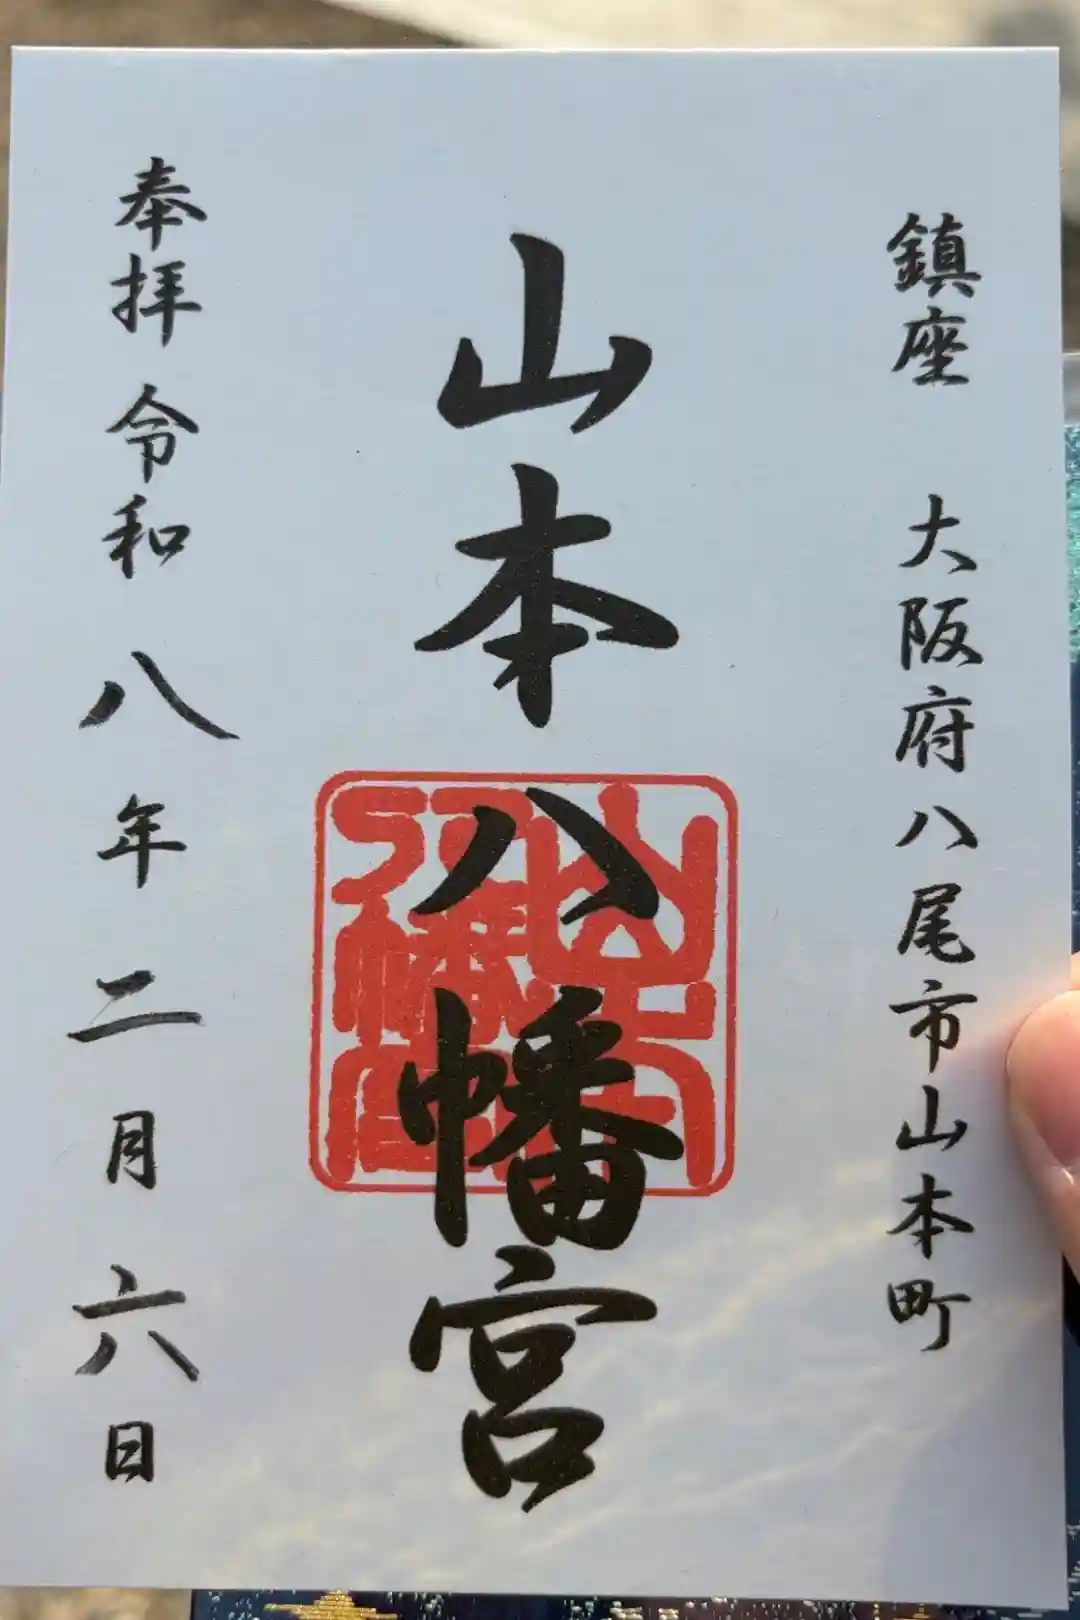 鎮座　大阪府八尾市山本町
山本八幡宮
山本
八幡宮
奉拝　令和八年二月六日